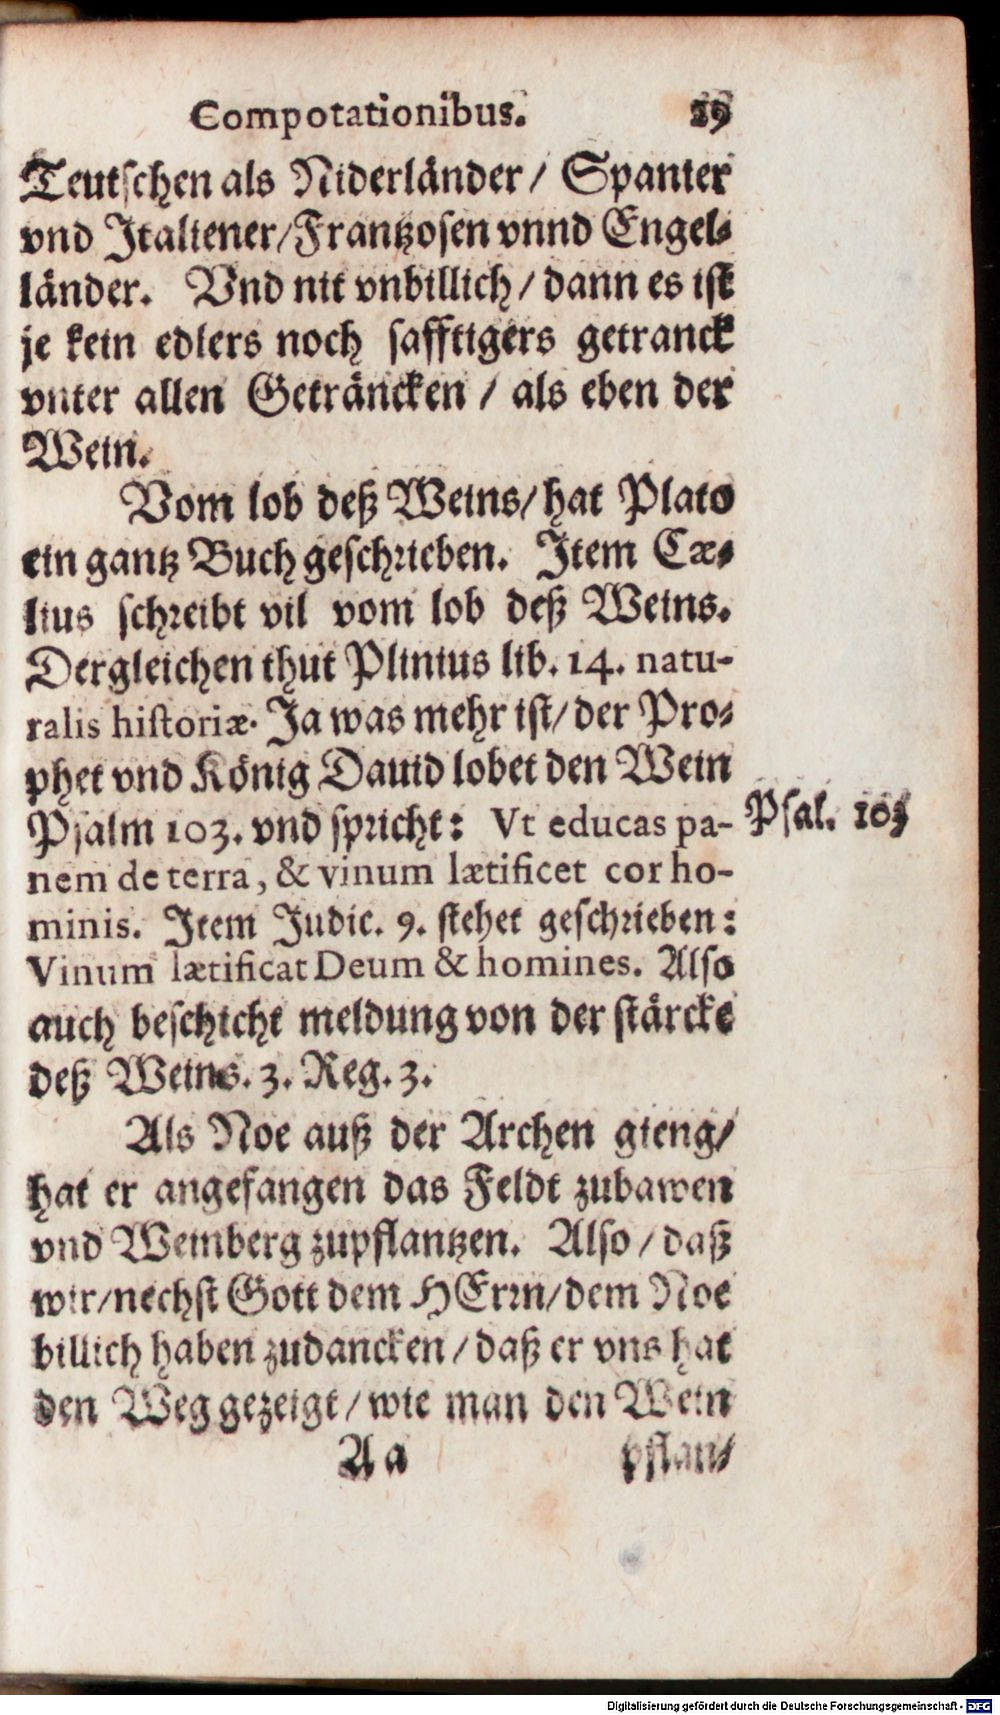 Compotationibus. 29
Teutschen als Niderländer / Spanier
vnd Italiener/Frantzosen vnnd Engel-
länder. Vnd nit vnbillich / dann es ist
je kein edlers noch safftigers getranck
vnter allen Geträncken / als eben der
Wein.
Vom lob deß Weins/ hat Plato
ein gantz Buch geschrieben. Item Cæ-
lius schreibt vil vom lob deß Weins.
Dergleichen thut Plinius lib. 14. natu-
ralis historiæ. Ja was mehr ist/ der Pro-
phet vnd König Dauid lobet den Wein
Psalm 103. vnd spricht: Vt educas pa-
Psal. 103
nem de terra, & vinum lætificet cor ho-
minis. Item Judic. 9. stehet geschrieben:
Vinum lætificat Deum & homines. Also
auch beschicht meldung von der stärcke
deß Weins. 3. Reg. 3.
Als Noe auß der Archen gieng/
hat er angefangen das Feldt zubawen
vnd Weinberg zupflantzen. Also / daß
wir/nechst Gott dem HErrn/dem Noe
billich haben zudancken / daß er vns hat
den Weg gezeigt / wie man den Wein
Aa pflan-
Digitalisierung gefördert durch die Deutsche Forschungsgemeinschaft - DFG